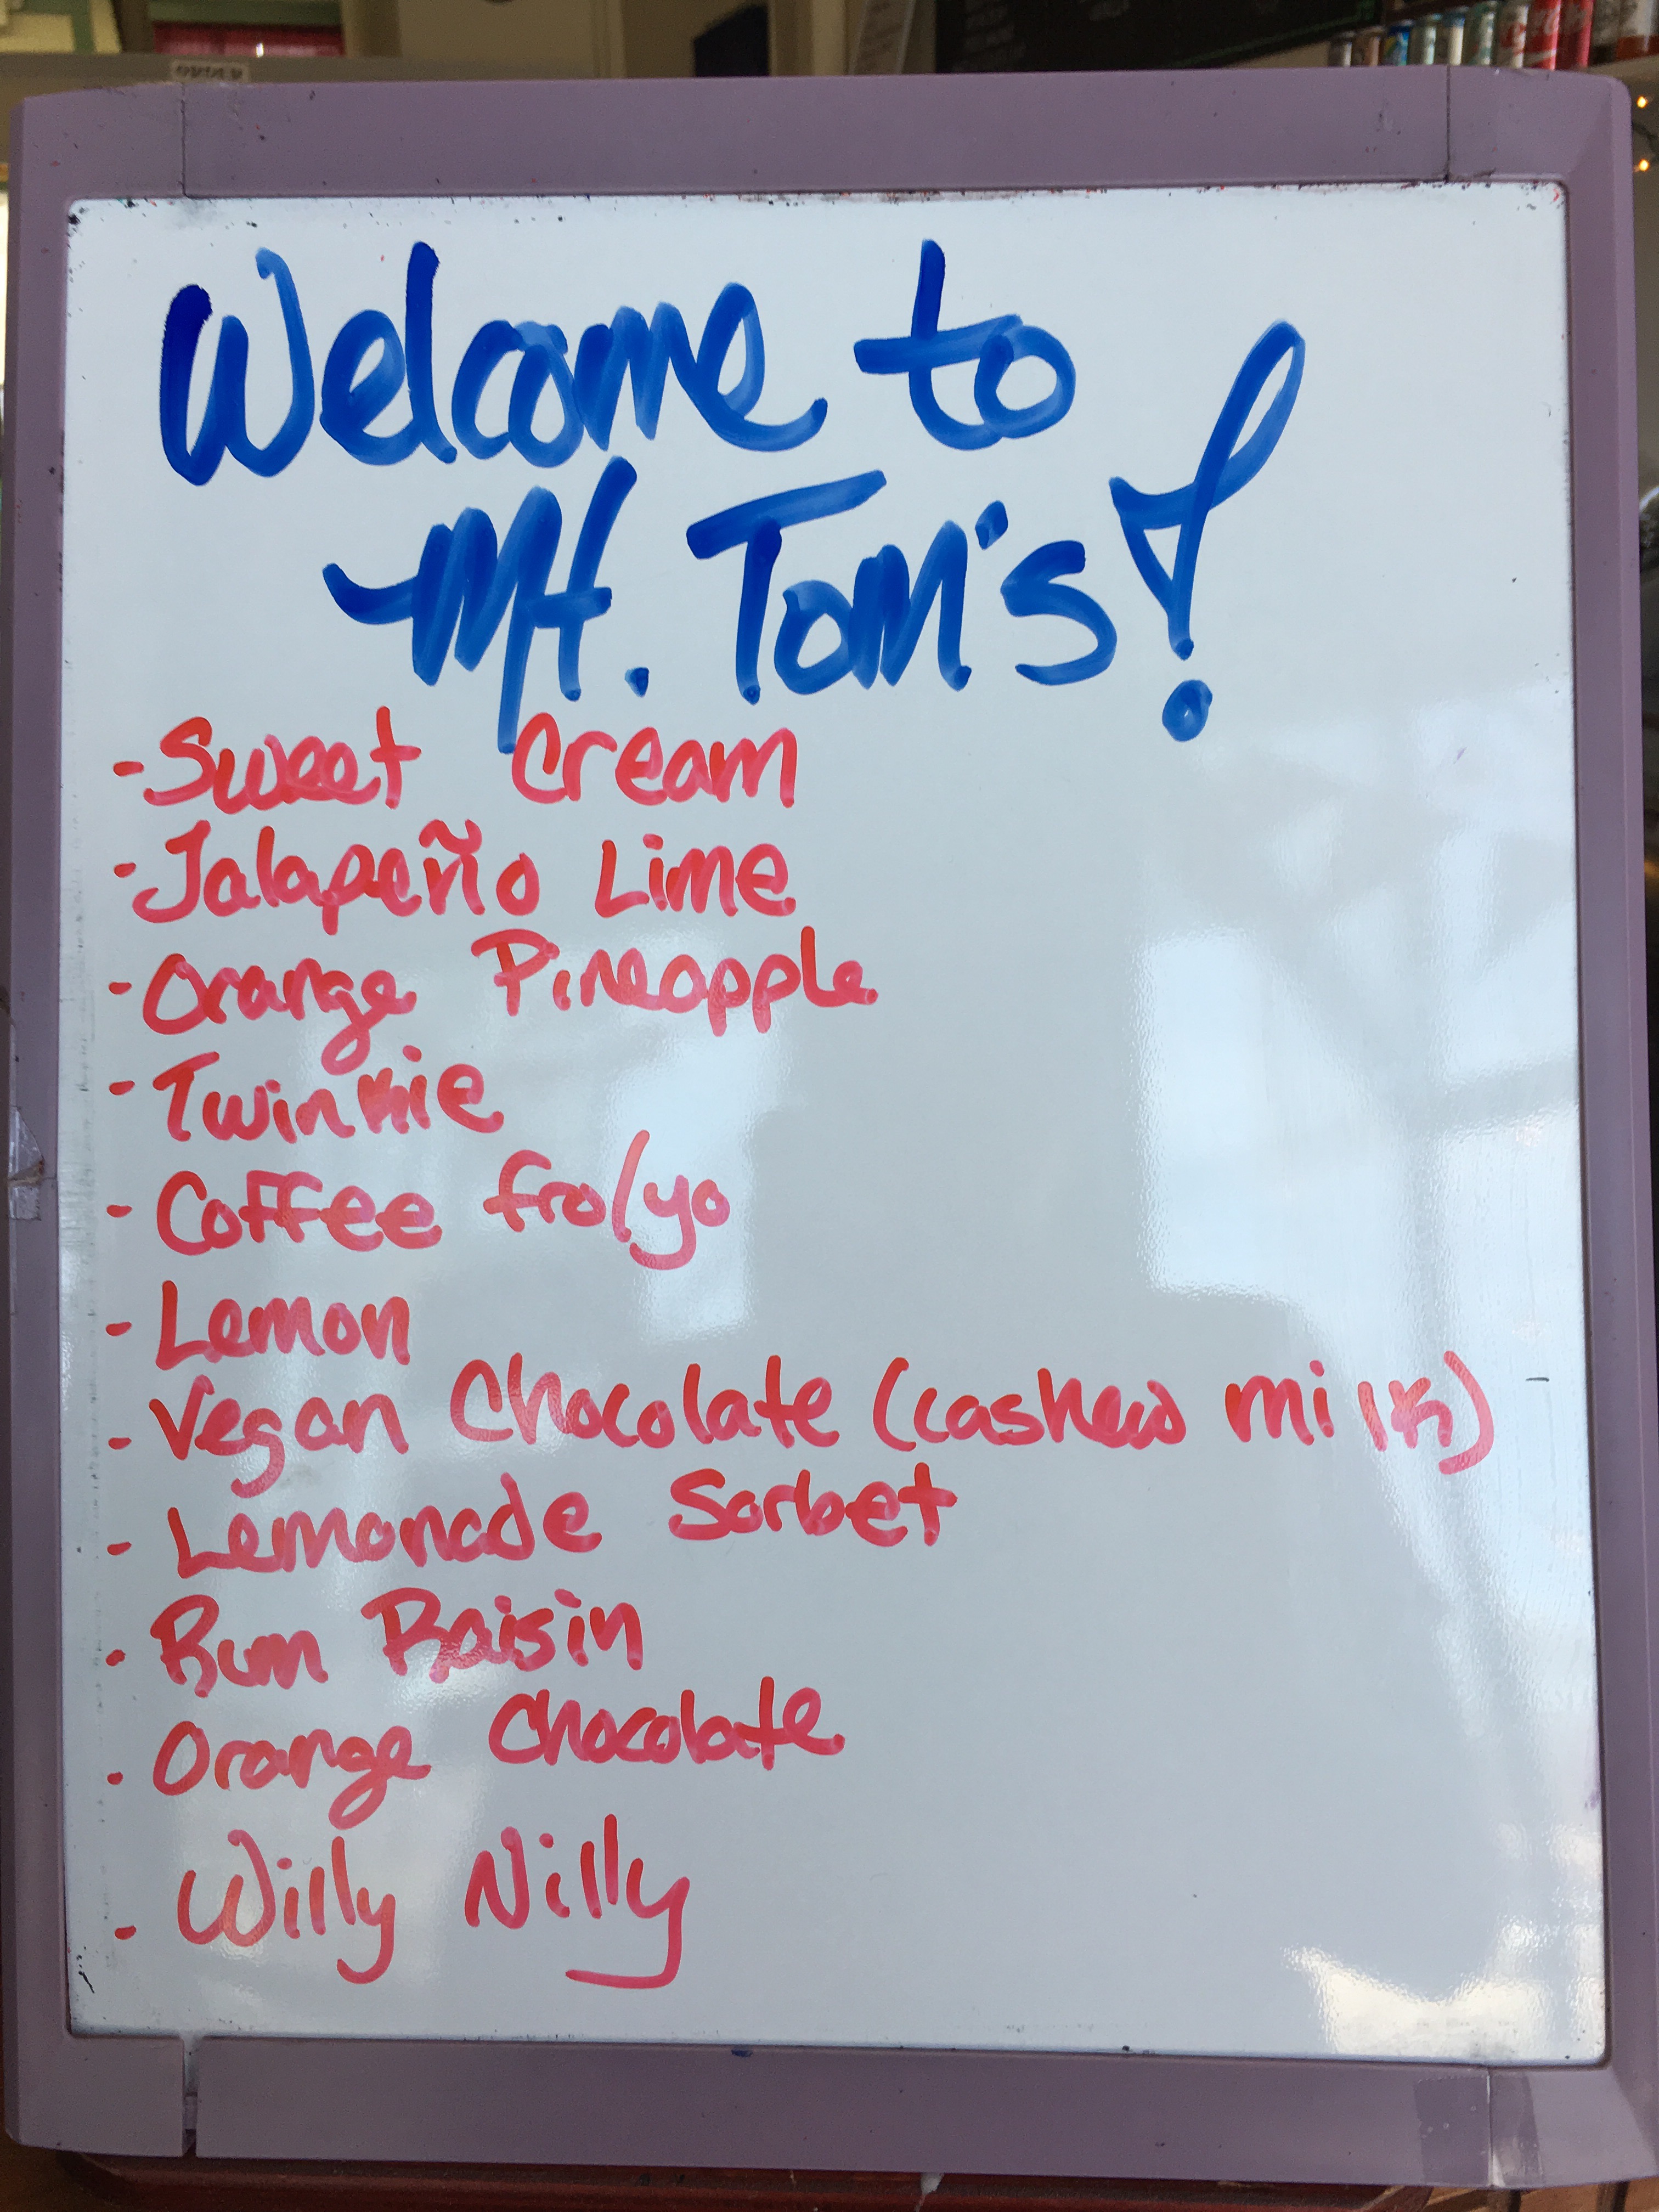 ORDER
Welcome to
Mt. Tom's!
- Sweet Cream
- Jalapeño Lime
- Orange Pineapple
- Twinkie
- Coffee fro/yo
- Lemon
- Vegan Chocolate (cashew milk)
- Lemonade Sorbet
- Rum Raisin
- Orange Chocolate
- Willy Nilly